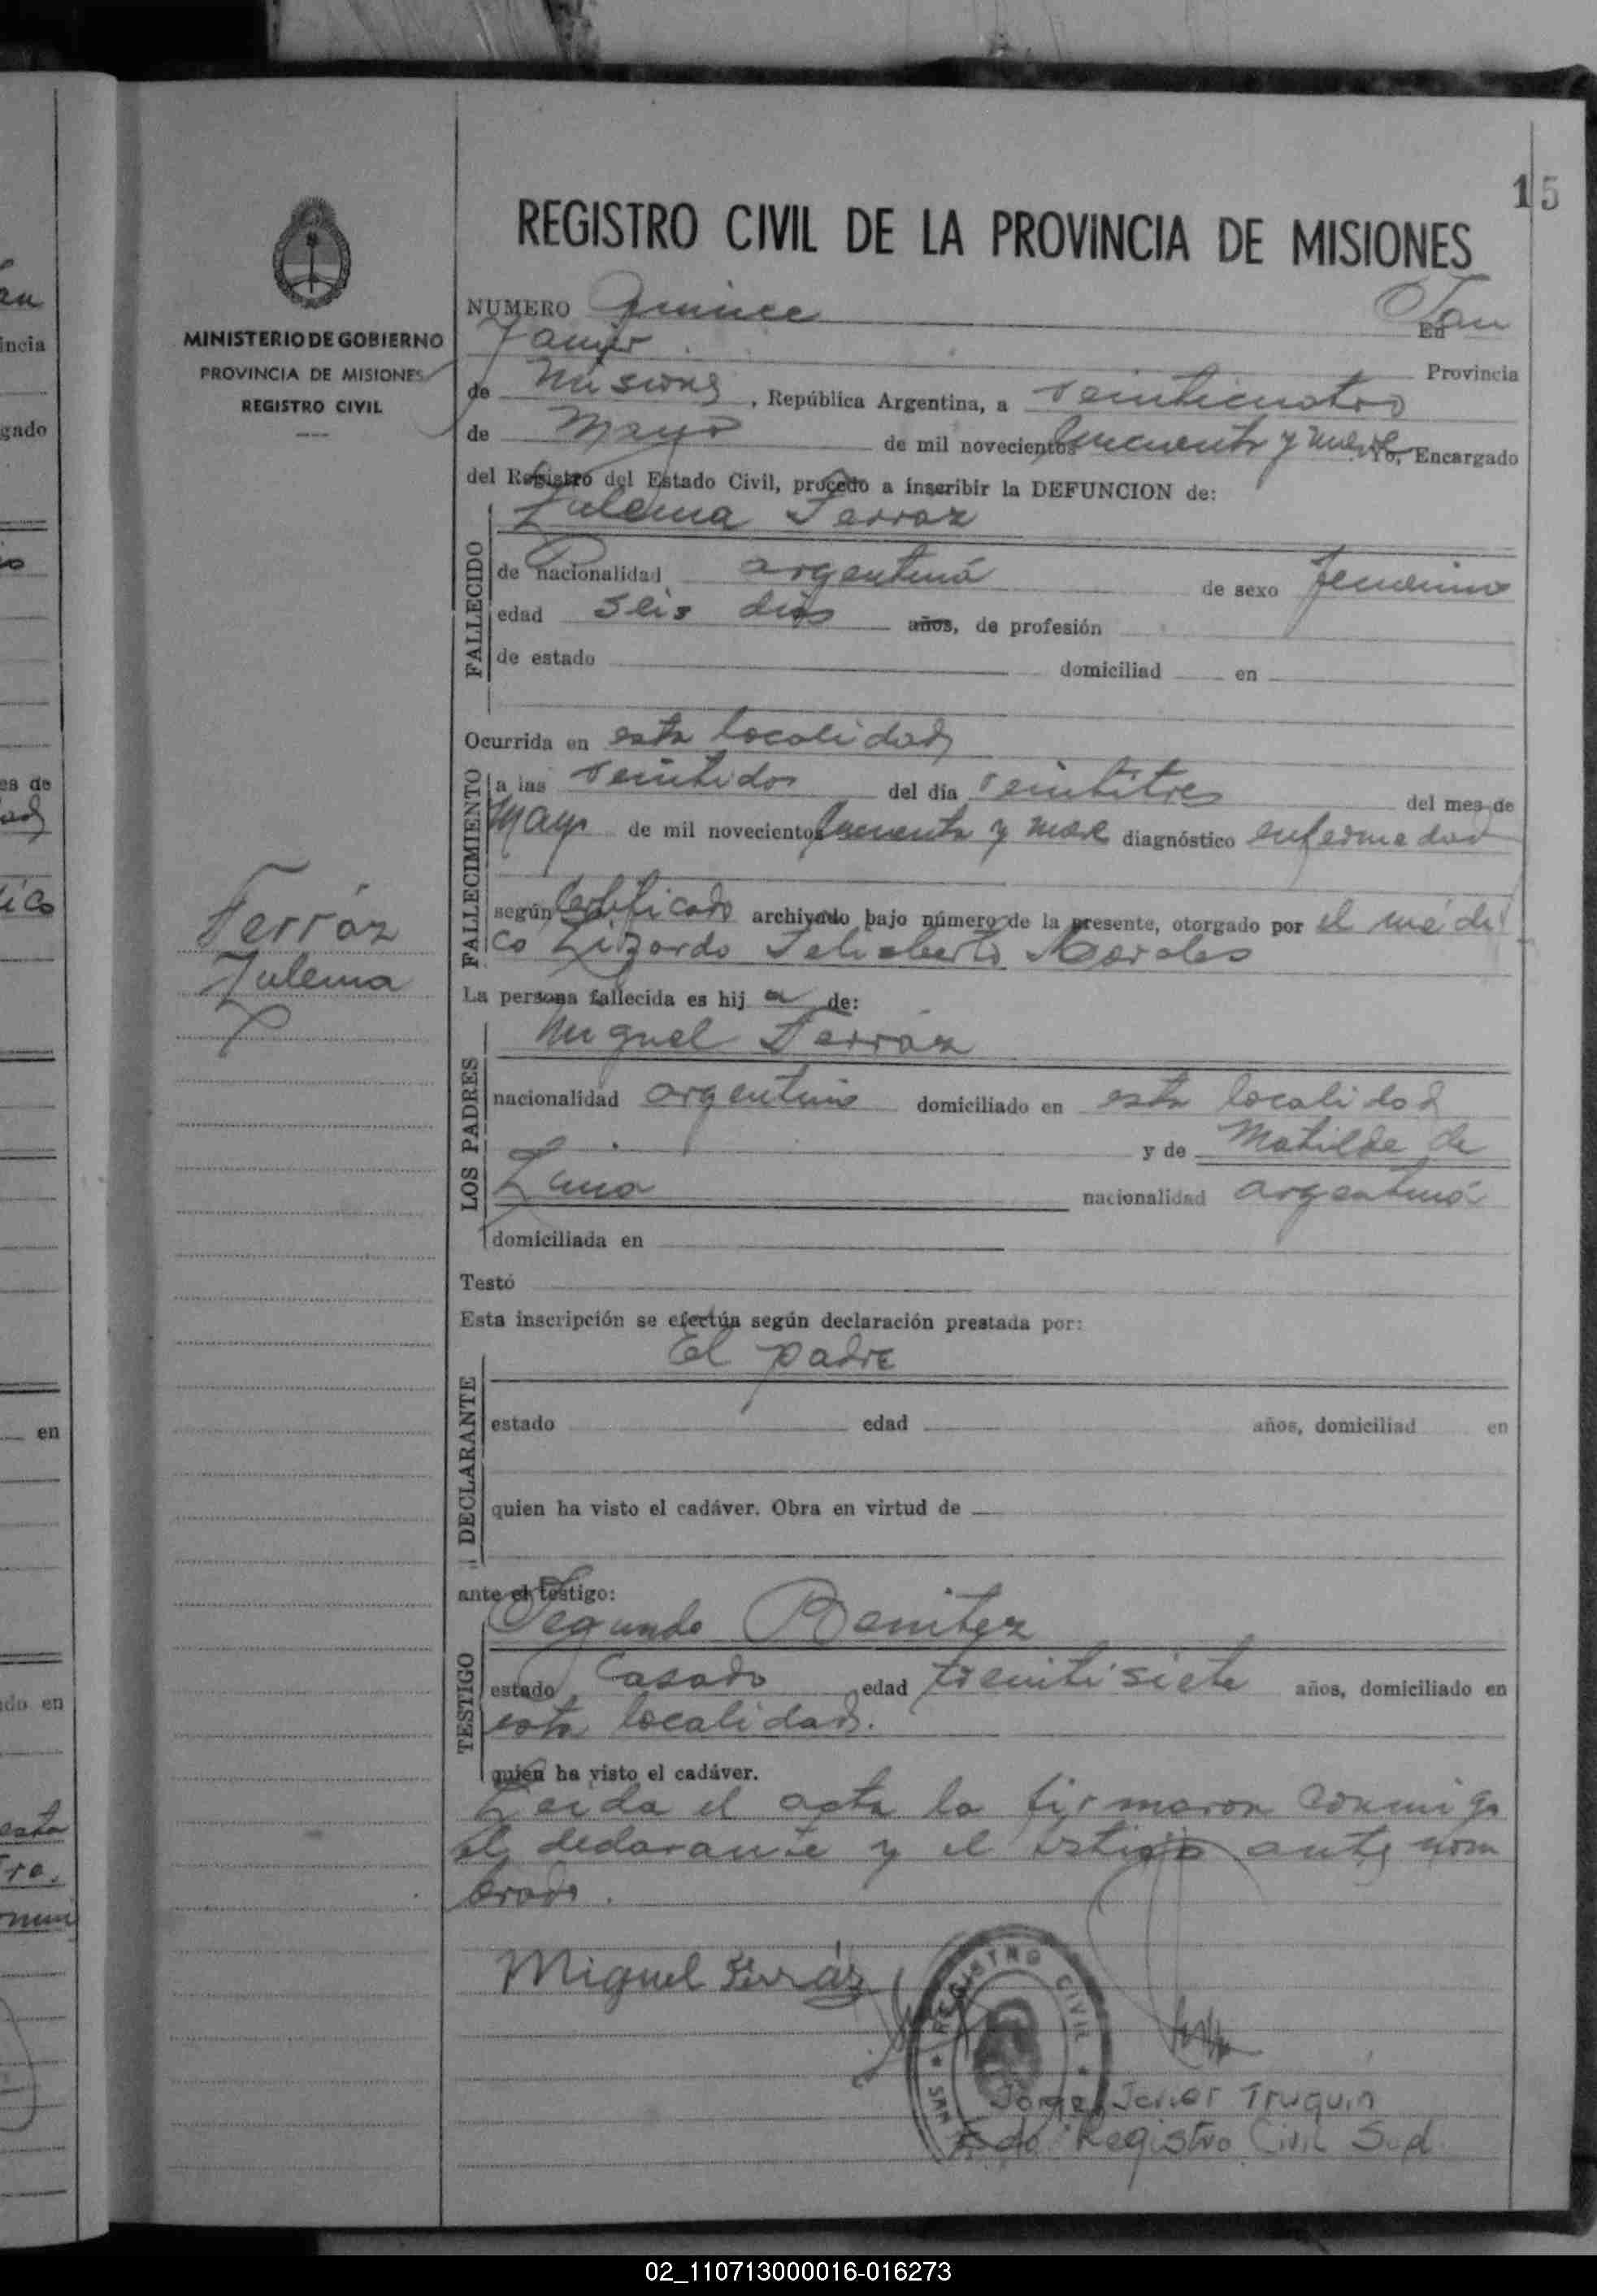 15
REGISTRO CIVIL DE LA PROVINCIA DE MISIONES
MINISTERIO DE GOBIERNO
PROVINCIA DE MISIONES
REGISTRO CIVIL
NUMERO Quince En San
Javier Provincia
de Misiones, República Argentina, a veinticuatro
de Mayo de mil novecientos cincuenta y nueve Yo, Encargado
del Registro del Estado Civil, procedo a inscribir la DEFUNCION de:
Zulema Ferraz
FALLECIDO
de nacionalidad argentina de sexo femenino
edad seis dias años, de profesión
de estado domiciliad en
Ocurrida en esta localidad
FALLECIMIENTO
a las veintidos del día veintitres del mes de
Mayo de mil novecientos cincuenta y nueve diagnóstico enfermedad
según certificado archivado bajo número de la presente, otorgado por el médi
co Lizardo Morales
Ferráz
Zulema
La persona fallecida es hij a de:
LOS PADRES
Miguel Ferráz
nacionalidad argentino domiciliado en esta localidad
y de Matilde de
nacionalidad argentina
domiciliada en
Testó
Esta inscripción se efectúa según declaración prestada por:
El padre
DECLARANTE
estado edad años, domiciliad en
quien ha visto el cadáver. Obra en virtud de
ante el testigo:
Segundo Benitez
TESTIGO
estado Casado edad treintisiete años, domiciliado en
esta localidad.
quien ha visto el cadáver.
Leida el acta la firmaron conmigo
el declarante y el testigo ante nom
brado.
Miguel Ferráz
REGISTRO CIVIL
SAN
Jorge Javier Truquin
Edo Registro Civil Sud.
02_110713000016-016273